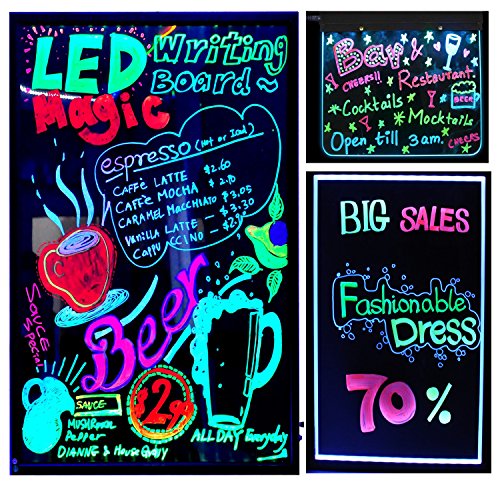 LED Writing
Magic Board~
espresso (Hot or Iced)
CAFFÈ LATTE $2.60
CAFFÈ MOCHA $2.90
CARAMEL MACCHIATO $3.05
Vanilla LATTE — $3.30
CAPPUCCINO — $2.9
SAUCE
Special
Beer
SAUCE
MUSHROOM
Pepper
DIANNE & House Gravy
$2.9
ALL DAY Everyday
Bar &
CHEERS!!
Restaurant.
Cocktails
BEER
Mocktails
Open till 3am.
CHEERS
BIG SALES
Fashionable
DRESS
70%